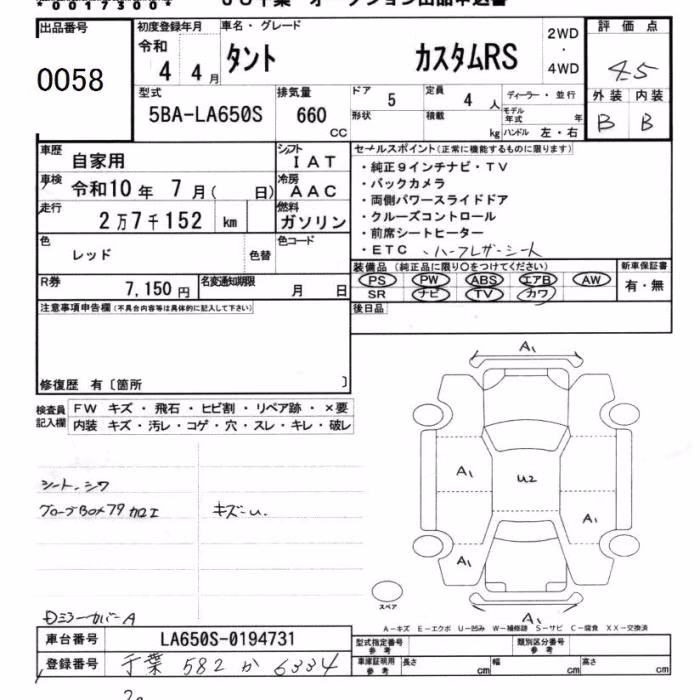 00173004
JU千葉 オークション出品申込書
出品番号 初度登録年月 車名・グレード 2WD・4WD 評価点
0058 令和 4 4月 タント カスタムRS 4.5
型式 排気量 ドア 定員 ディーラー・並行 外装 内装
5BA-LA650S 660 CC 5 4 人 モデル年式 年 B B
形状 積載 kg ハンドル 左・右
車歴 自家用 シフト IAT セールスポイント(正常に機能するものに限ります)
車検 令和10年 7月( 日) 冷房 AAC ・純正9インチナビ・TV
走行 2万7千152 km 燃料 ガソリン ・バックカメラ
・両側パワースライドドア
・クルーズコントロール
・前席シートヒーター
色 レッド 色替 色コード ・ETC ・ハーフレザーシート
R券 7,150円 名変通知期限 月 日 装備品(純正品に限り○をつけてください) 新車保証書
PS PW ABS エアB AW 有・無
SR ナビ TV カワ
注意事項申告欄(不具合内容等は具体的に記入して下さい) 後日品
修復歴 有〔箇所 〕
検査員記入欄 FW キズ・飛石・ヒビ割・リペア跡・×要
内装 キズ・汚レ・コゲ・穴・スレ・キレ・破レ
A1
A1
U2
A1
A1
シート、シワ
グローブBOX79加工 キズ・U.
スペア
A1
Dミラーカバー A
A-キズ E-エクボ U-凹み W-補修跡 S-サビ C-腐食 XX-交換済
車台番号 LA650S-0194731 型式指定番号 参考 類別区分番号 参考
登録番号 千葉 582 か 6334 車庫証明用 参考 長さ cm 幅 cm 高さ cm